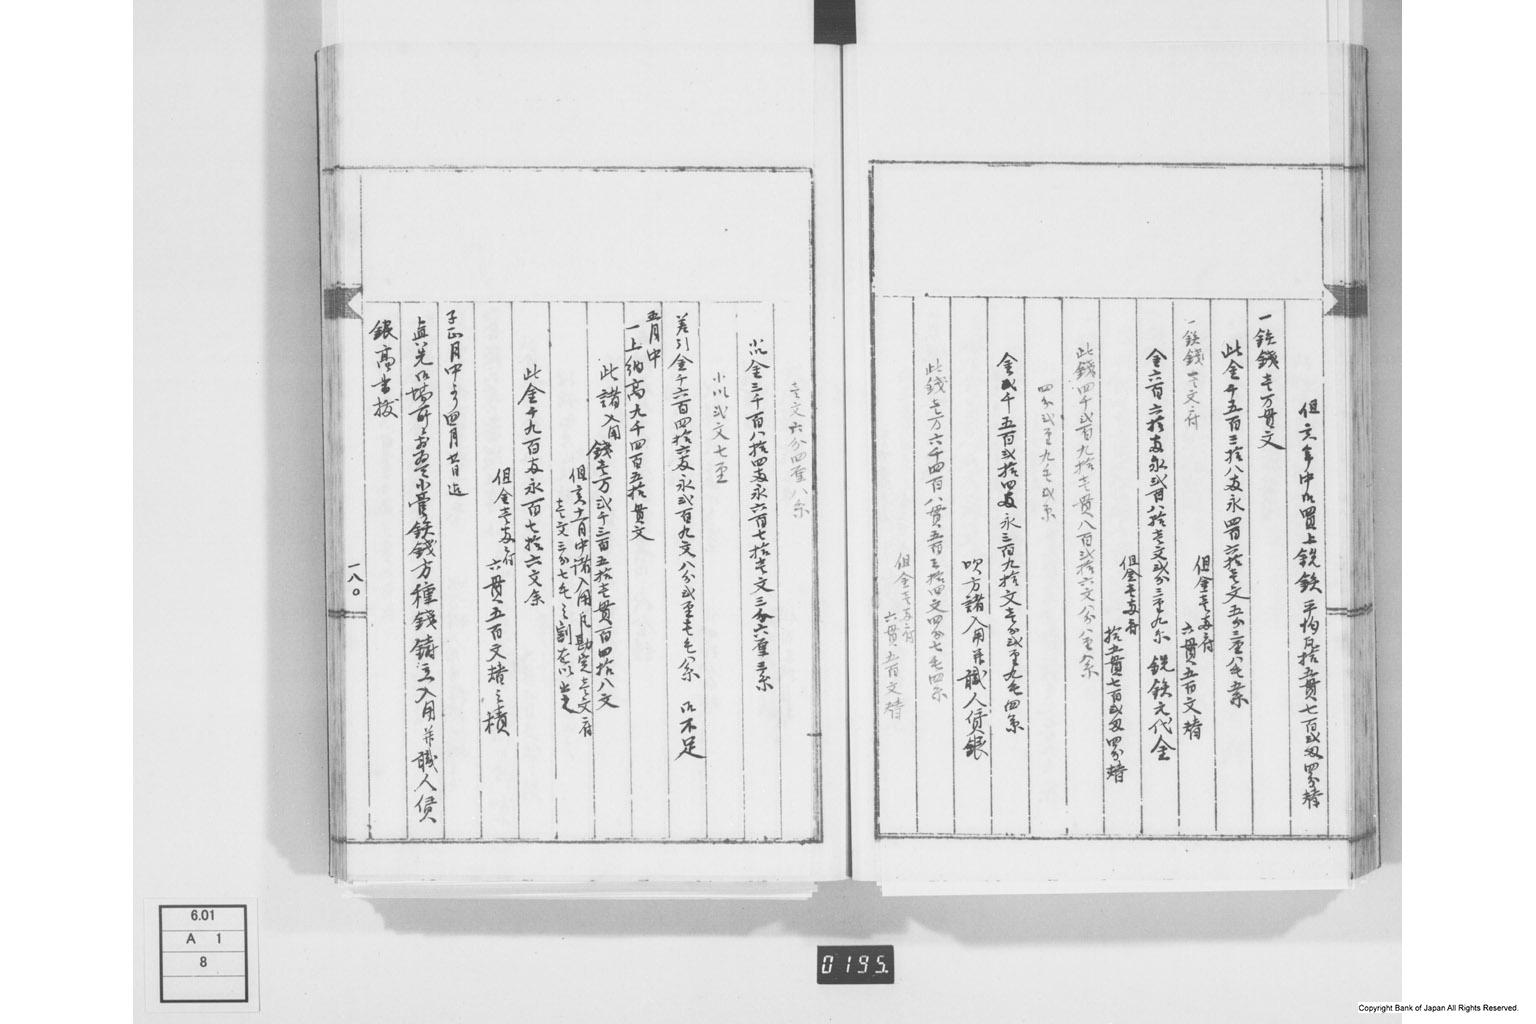 但亥年中御買上銑鉄平均ニ付拾五貫七百弐匁四分替
一鉄銭壱万貫文
此金千五百三拾八両永四百六拾壱文五分三厘八毛
一鉄銭壱文ニ付
但金壱両ニ付
六貫五百文替
金六百六拾両永弐百八拾壱文弐分三厘九毛 銑鉄元代金
但金壱両ニ付
拾五貫七百弐匁四分替
此銭四千弐百九拾壱貫八百弐拾六文八分八厘
四分弐厘九毛弐糸
金弐千五百弐拾四両永三百九拾文壱分弐厘九毛四糸
吹方諸入用并職人賃銀
此銭壱万六千四百八貫五百三拾四文四分七毛四糸
但金壱両ニ付
六貫五百文替
壱文六分四厘八糸
小以金三千百八拾四両永六百七拾壱文三分六厘三糸
小以弐文七厘
差引金千六百四拾六両永弐百九文八分弐厘壱毛八糸 御不足
五月中
一上納高九千四百五拾貫文
此諸入用
銭壱万弐千三百五拾壱貫百四拾八文
但亥十一月中諸入用凡勘定壱文ニ付
壱文三分七毛之割を以出之
此金千九百両永百七拾六文余
但金壱両ニ付
六貫五百文替之積
子正月中より四月廿日迄
真先御場所おゐて小菅鉄銭方種銭鋳立入用并職人賃
銀高書抜
一八〇
6.01
A 1
8
0195.
Copyright Bank of Japan All Rights Reserved.